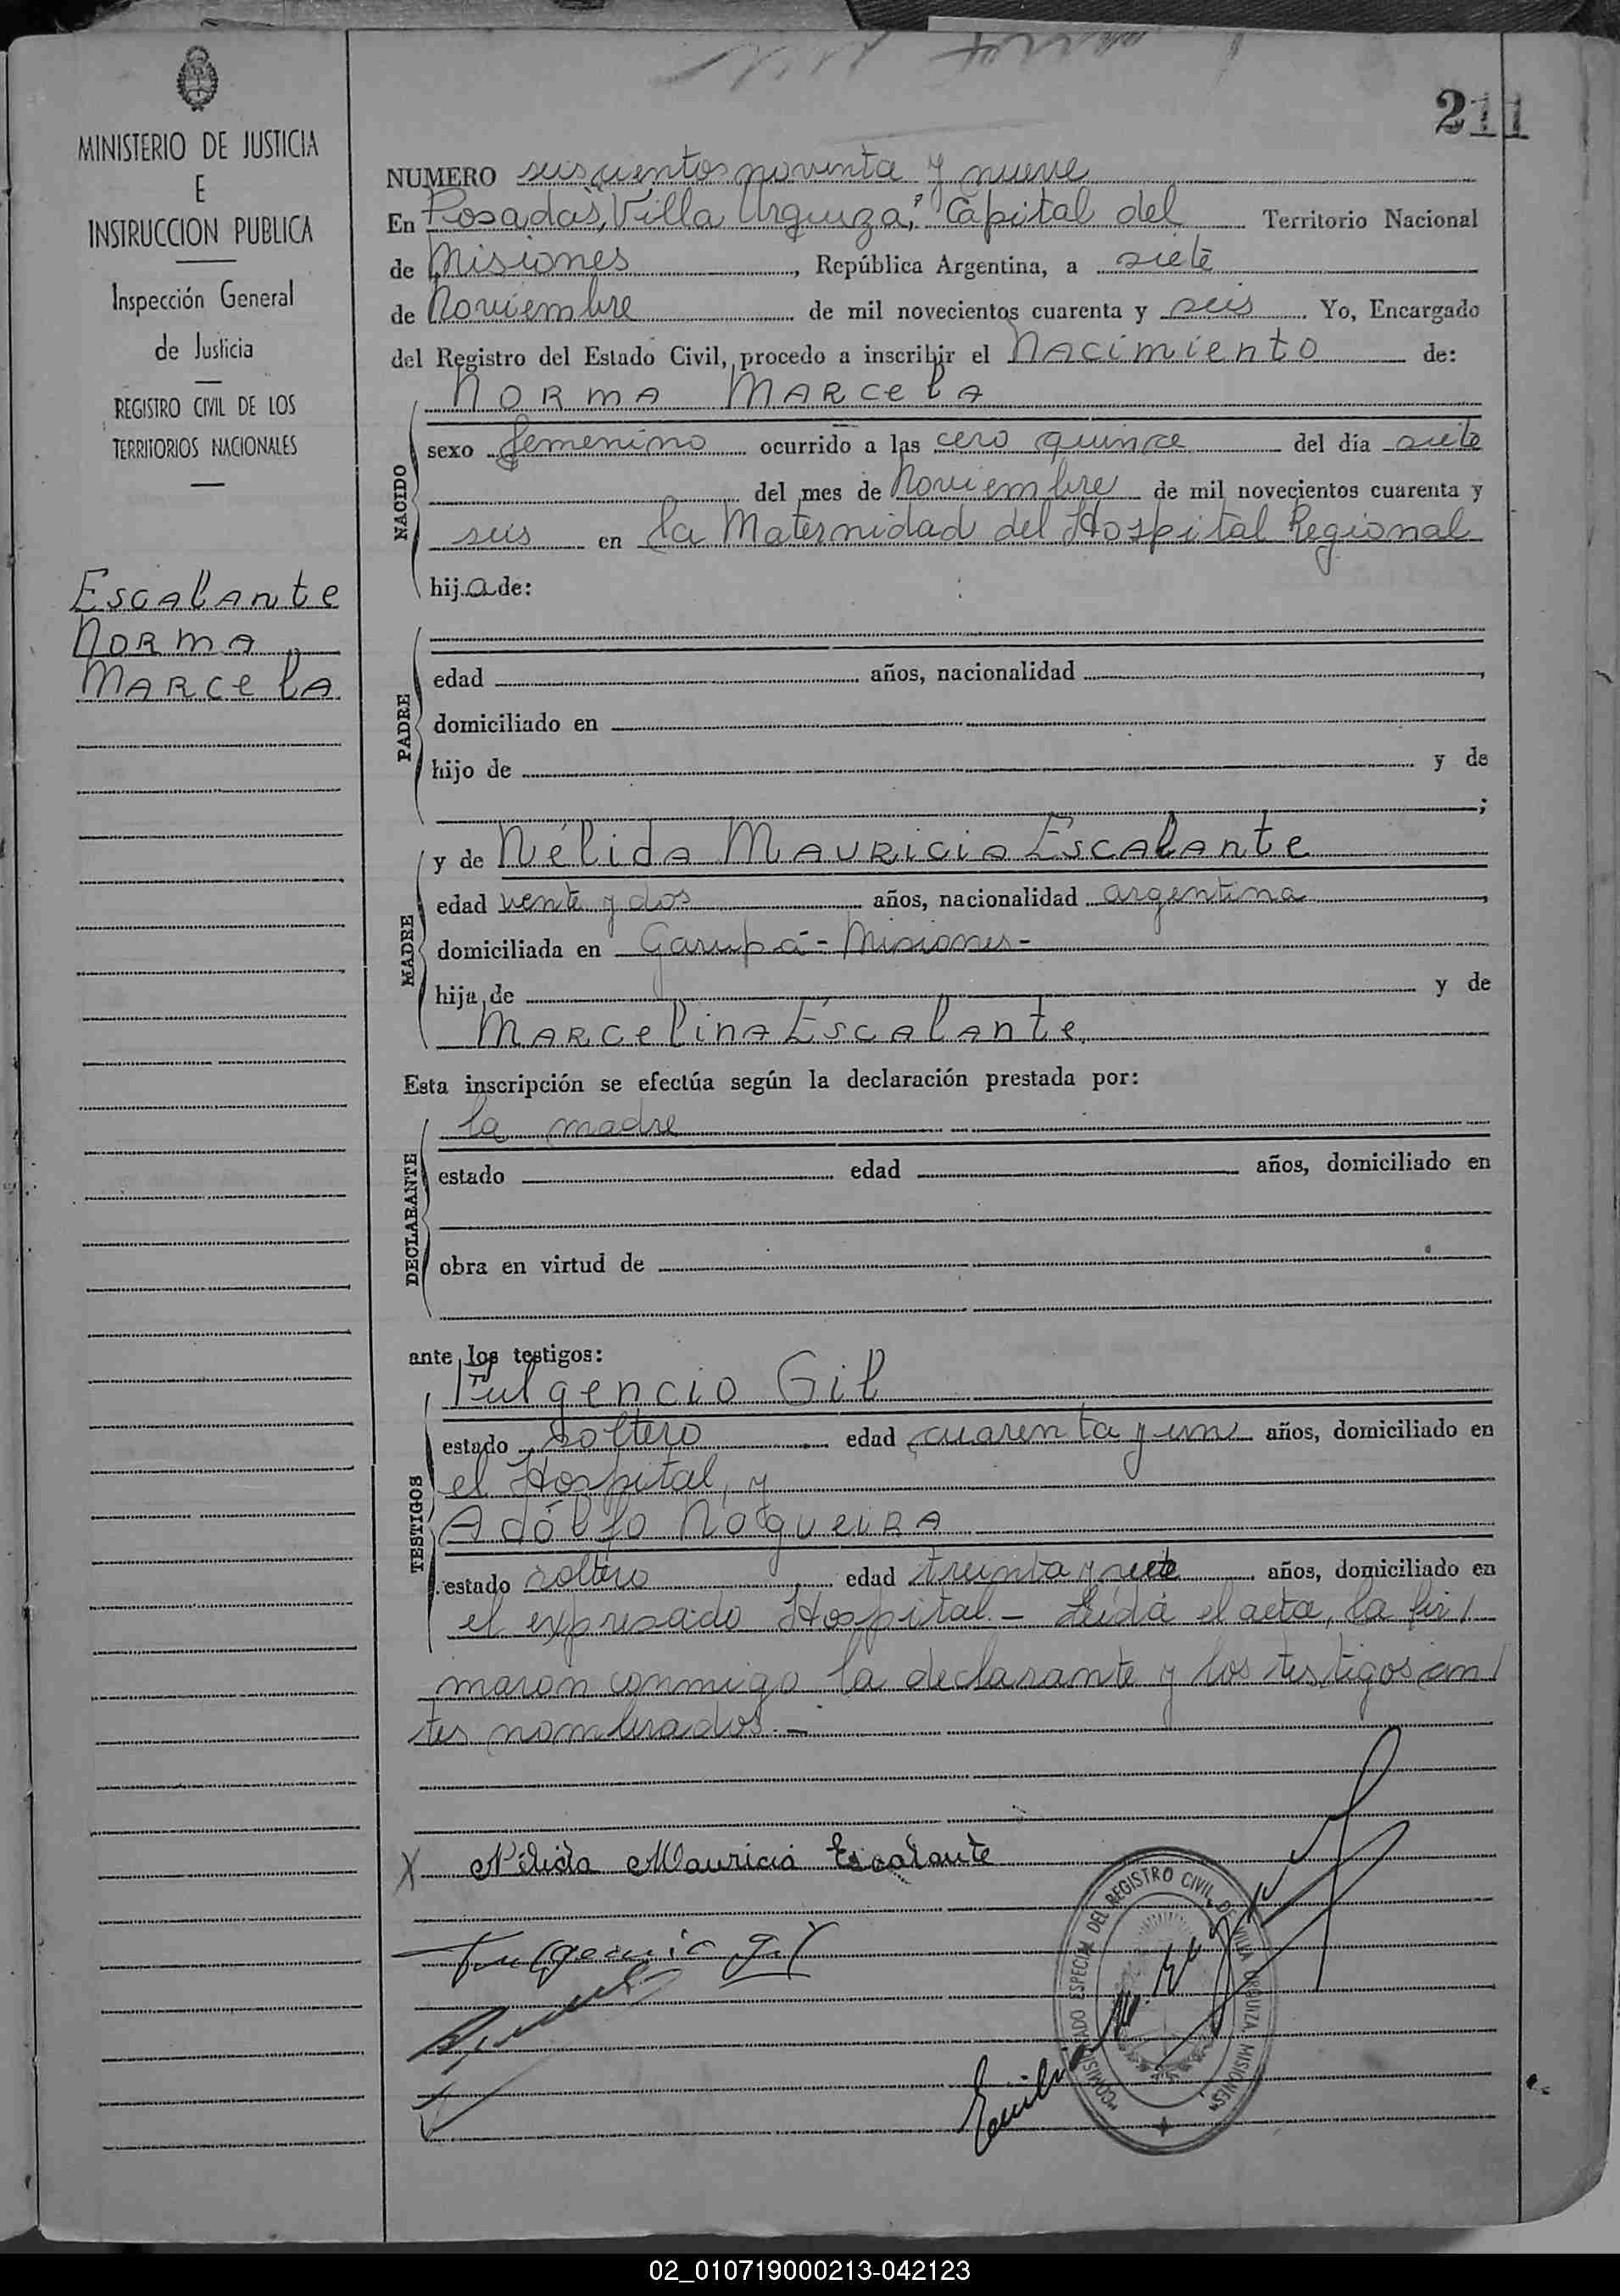 211
MINISTERIO DE JUSTICIA
E
INSTRUCCION PUBLICA
Inspección General
de Justicia
REGISTRO CIVIL DE LOS
TERRITORIOS NACIONALES
Escalante
Norma
Marcela
NUMERO seiscientos noventa y nueve
En Posadas, "Villa Urquiza", Capital del Territorio Nacional
de Misiones, República Argentina, a siete
de Noviembre de mil novecientos cuarenta y seis. Yo, Encargado
del Registro del Estado Civil, procedo a inscribir el Nacimiento de:
Norma Marcela
NACIDO
sexo femenino ocurrido a las cero quince del día siete
del mes de Noviembre de mil novecientos cuarenta y
seis en la Maternidad del Hospital Regional
hija de:
PADRE
edad años, nacionalidad ,
domiciliado en
hijo de y de
;
MADRE
y de Nélida Mauricia Escalante
edad vente y dos años, nacionalidad argentina,
domiciliada en Garupá - Misiones -
hija de y de
Marcelina Escalante
Esta inscripción se efectúa según la declaración prestada por:
DECLARANTE
la madre
estado edad años, domiciliado en
obra en virtud de
ante los testigos:
TESTIGOS
Fulgencio Gil
estado soltero edad cuarenta y un años, domiciliado en
el Hospital, y
Adólfo Nogueira
estado soltero edad treinta y siete años, domiciliado en
el expresado Hospital. - Leída el acta, la fir/
maron conmigo la declarante y los testigos an/
tes nombrados. -
X Nélida Mauricia Escalante
Fulgencio Gil
"COMISIONADO ESPECIAL DEL REGISTRO CIVIL DE VILLA URQUIZA, MISIONES"
02_010719000213-042123